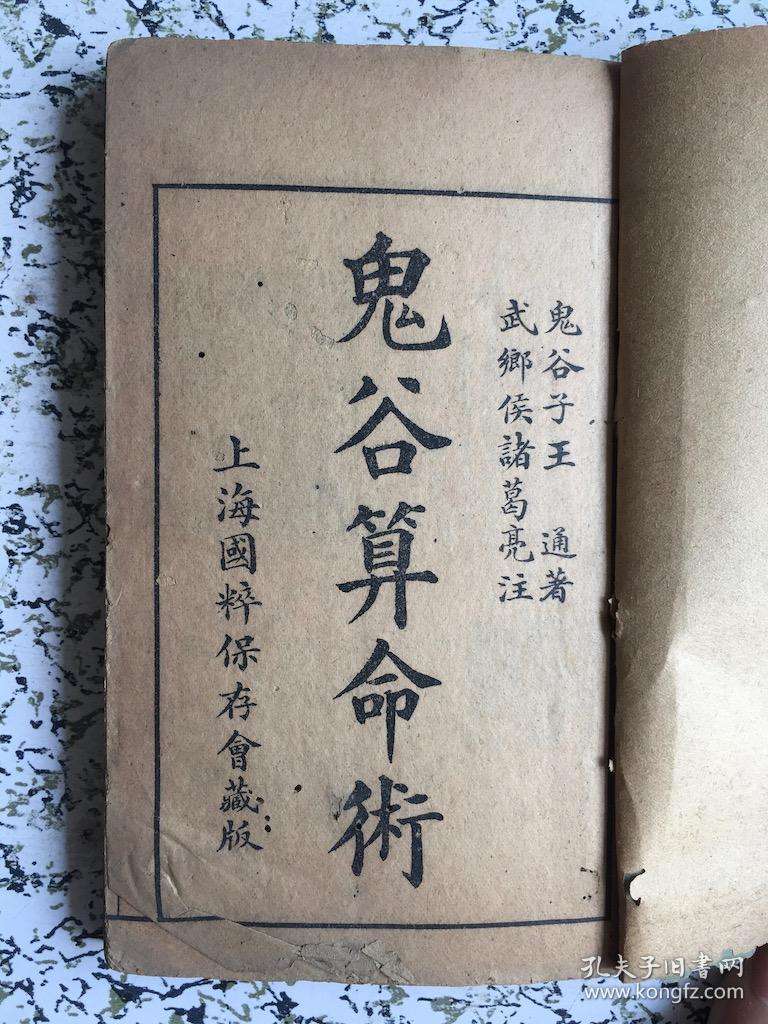 鬼谷子王　通著
武鄉侯諸葛亮注
鬼谷算命術
上海國粹保存會藏版
孔夫子旧書网
www.kongfz.com